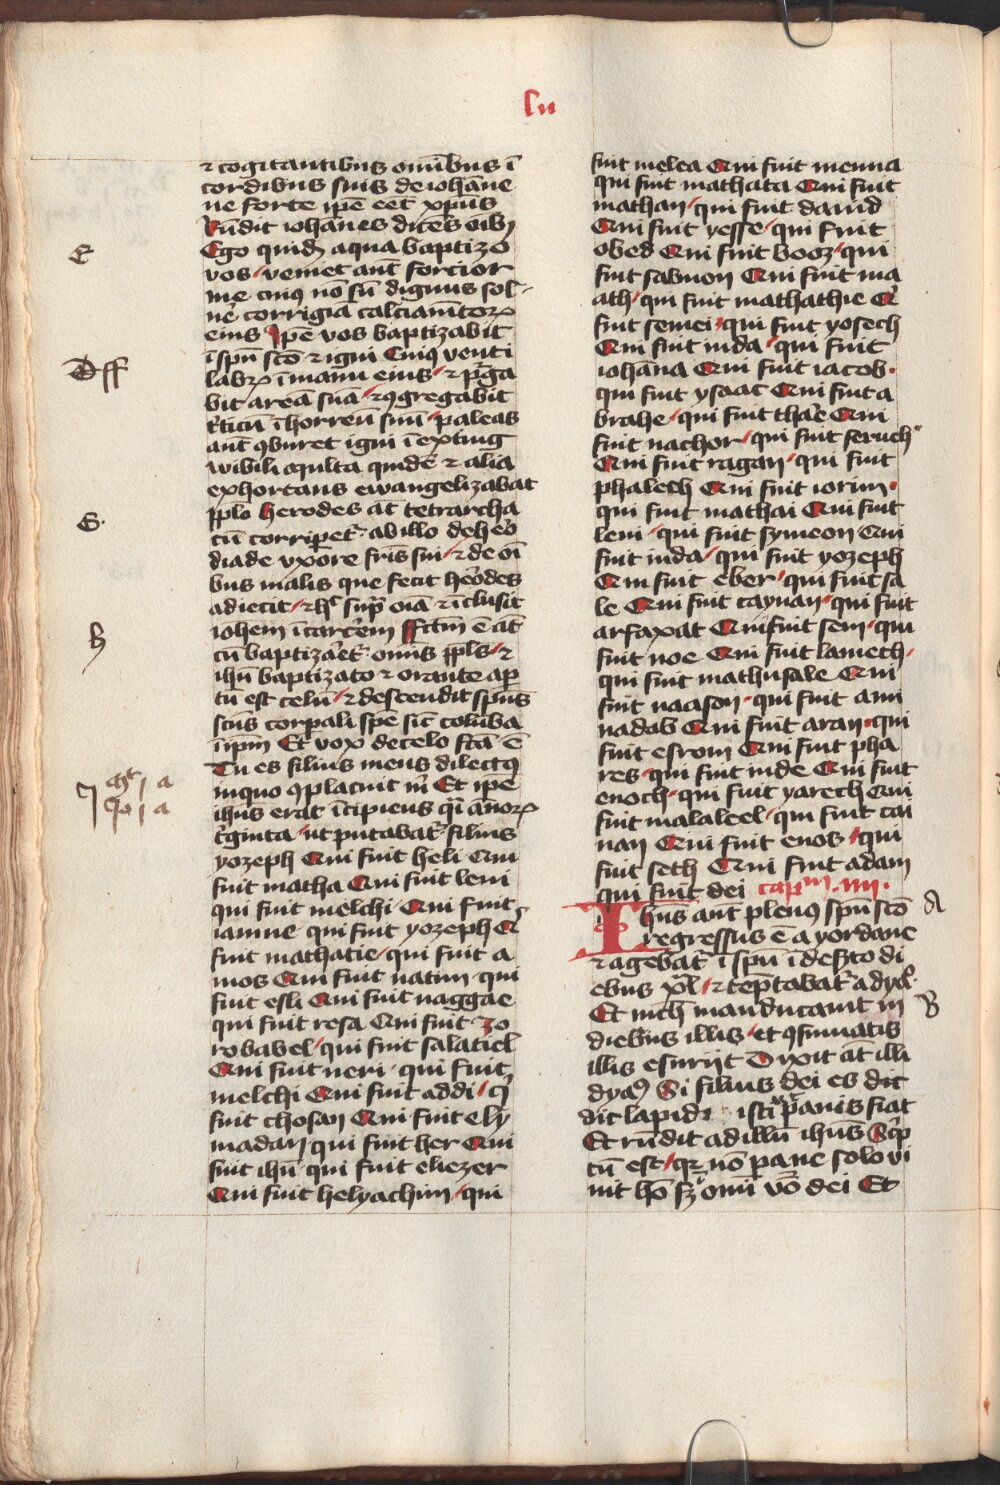 lu
⁊ cogitantibus om̄ibus ī
cordibus suis de ioh̄ane
ne forte ip̄e eēt xp̄us
Rūdit ioh̄anēs dicēs oīb
E
Ego quidē aqua baptizo
vos / veniet aūt forcior
me cuiꝰ nō sū dignus sol-
ue᷑ corrigiā calciam̄torꝝ
eius Ip̄e vos baptizabit
ī spū scō ⁊ igni Cuiꝰ venti
Dff
labrꝝ ī manu eius / ⁊ pᷓga
bit areā suā / ⁊ ꝯgregabit
t᷑ticū ī horreū suū / paleas
aūt ꝯburet igni ī exting
wibili Multa quidē ⁊ alia
exhortans ewangelizabat
G.
pp̄lo herodes āt tetrarcha
cū corripet᷑ ab illo de he᷑o
diade vxore fr̄is sui / ⁊ de oī
bus malis que fecit he᷑odes
adiecit / ⁊ hͦ supᷓ oīa ⁊ īclusit
h
ioh̄em ī carce᷑em ffctm̄ ē āt
cū baptiza᷑et᷑ omīs pp̄ls / ⁊
ih̄u baptizato ⁊ orante ap᷑
tū est celū / ⁊ descendit spūs
scūs corpali spē sic̄ colūba
ī ip̄m Et vox de celo fcā ē
Tu es filius meus dilectꝰ
mt͛ j a
in quo ꝯplacuit m̄ Et ip̄e
io j a
ih̄us erat īcipiens qͣi ānorꝝ
t᷑ginta / ut putabat᷑ filius
yozeph Qui fuit heli Qui
fuit matha Qui fuit leui
qui fuit melchi · Qui fuit
iamne · qui fuit yozeph Q͛
fuit mathatie / qui fuit a
mos Qui fuit naum · qui
fuit esli Qui fuit naggae
qui fuit resa Qui fuit zo
robabel / qui fuit salatiel
Qui fuit neri · qui fuit
melchi Qui fuit addi / q͛
fuit chosan Qui fuit ely
madan qui fuit her Qui
fuit ih̄u qui fuit eliezer
Qui fuit helyachim / qui
fuit melea Qui fuit menna
qui fuit mathata Qui fuit
mathan / qui fuit dauid
Qui fuit yesse / qui fuit
obed Qui fuit booz / qui
fuit salmon Qui fuit ma
ath / qui fuit mathathie Q͛
fuit semei / qui fuit yosech
Qui fuit iuda / qui fuit
iohāna Qui fuit iacob ·
qui fuit ysaac Qui fuit a
brahe / qui fuit tha᷑e Qui
fuit nachor / qui fuit seruch
Qui fuit ragau / qui fuit
phalech Qui fuit iorim ·
qui fuit mathai Qui fuit
leui / qui fuit symeon Qui
fuit iuda / qui fuit yozeph
Qui fuit eber / qui fuit sa
le Qui fuit caynan · qui fuit
arfaxat Qui fuit sem · qui
fuit noe Qui fuit lamech /
qui fuit mathusale Qui
fuit naason · qui fuit ami
nadab Qui fuit aran · qui
fuit esrom Qui fuit pha
res · qui fuit iude Qui fuit
enoch · qui fuit yarech Qui
fuit malaleel / qui fuit cai
nan Qui fuit enos / qui
fuit seth Qui fuit adam
qui fuit dei capᵐ · iiii ·
Ih̄us aūt plenꝰ spū scō A
regressus ē a yordane
⁊ agebat᷑ ī spū ī dez̄to di
ebus xl / ⁊ tēptabat᷑ a dyaͦ
Et nich̄ manducauit in B
diebus illis / et ꝯsūmatis
illis esuriit Dixit āt illi
dyaꝰ Si filius dei es dic
dic lapidi isti ut panis fiat
Et rn̄dit ad illū ih̄us Sc͛p
tū est / qꝛ nō pane solo vi
uit hō sꝫ omī v᷑o dei Et